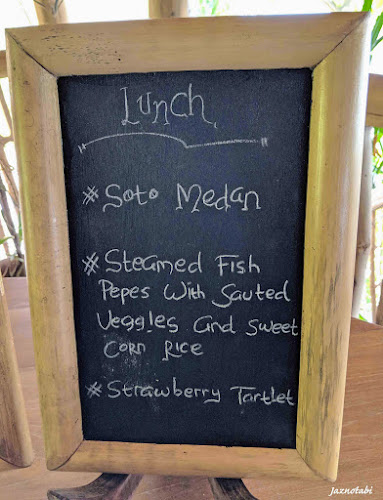 Lunch
# Soto Medan
# Steamed Fish
Pepes With Sauted
Veggies and Sweet
Corn Rice
# Strawberry Tartlet
Jaznotabi